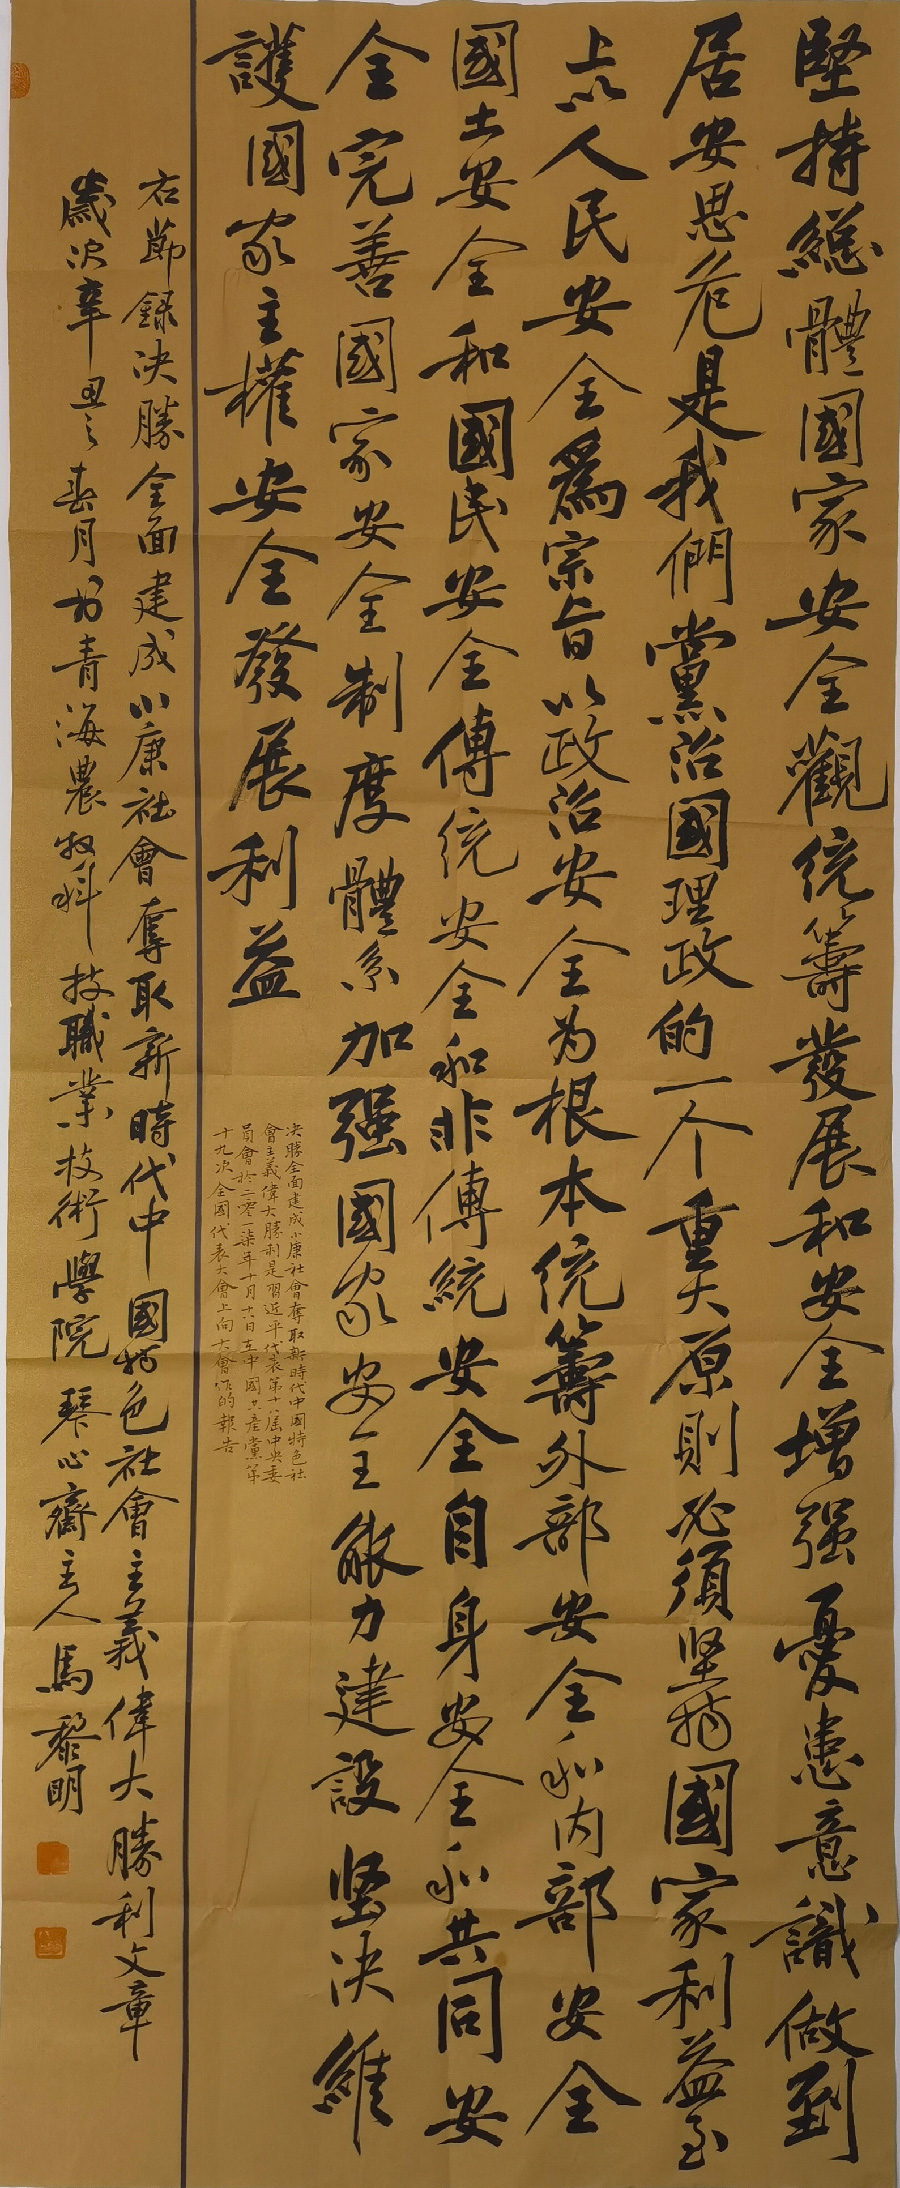 堅持總體國家安全觀統籌發展和安全增强憂患意識做到
居安思危是我們黨治國理政的一个重大原則必須坚持國家利益至
上以人民安全爲宗旨以政治安全为根本统籌外部安全和内部安全
國土安全和國民安全傳统安全和非傳統安全自身安全和共同安
全完善國家安全制度體系加强國家安全能力建設坚决維
護國家主權安全發展利益
决勝全面建成小康社會奪取新時代中國特色社
會主義偉大勝利是習近平代表第十八届中央委
員會於二零一柒年十月十八日在中國共產黨第
十九次全國代表大會上向大會作的報告
右節録决勝全面建成小康社會奪取新時代中國特色社會主義偉大勝利文章
歲次辛丑之春月於青海農牧科技職業技術學院琴心齋主人馬黎明